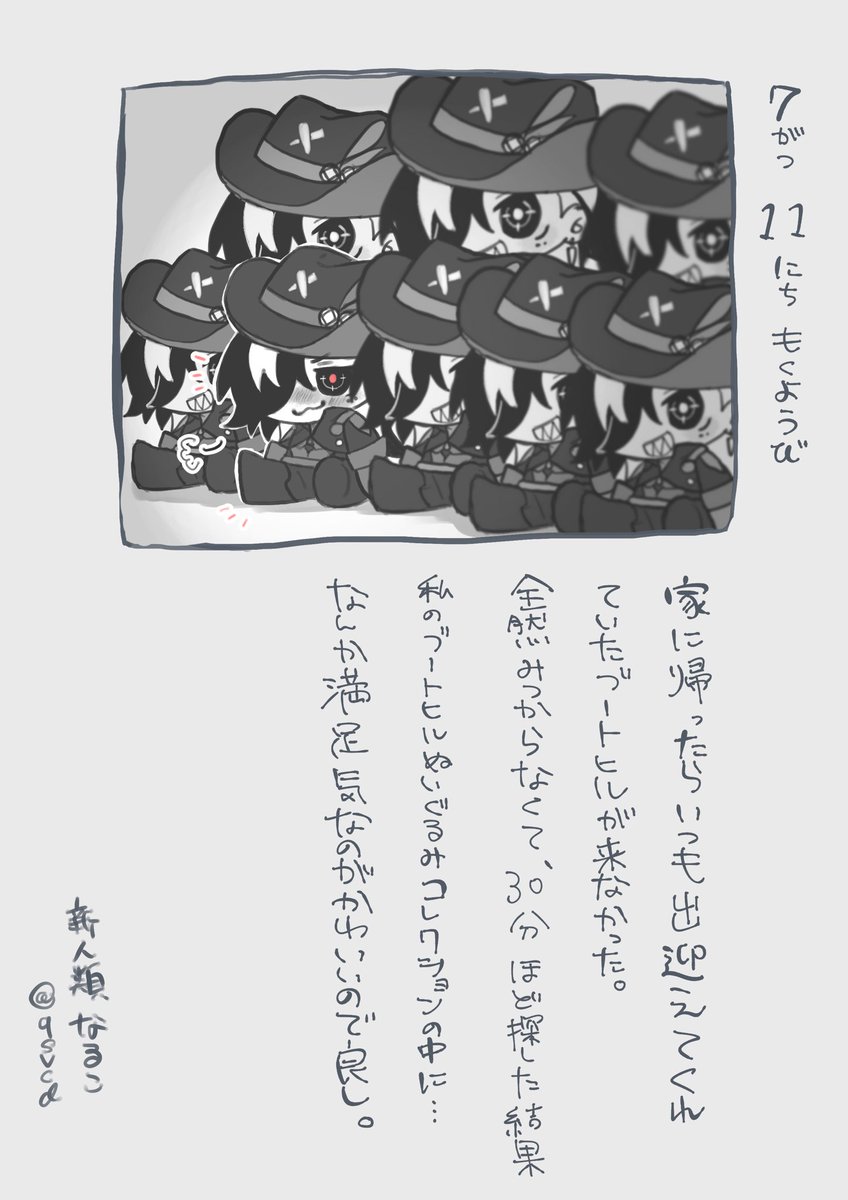 7がつ 11にち もくようび
家に帰ったらいつも出迎えてくれ
ていたブートヒルが来なかった。
全然みつからなくて、30分ほど探した結果
私のブートヒルぬいぐるみコレクションの中に…
なんか満足気なのがかわいいので良し。
新人類なるこ
@qsvcd